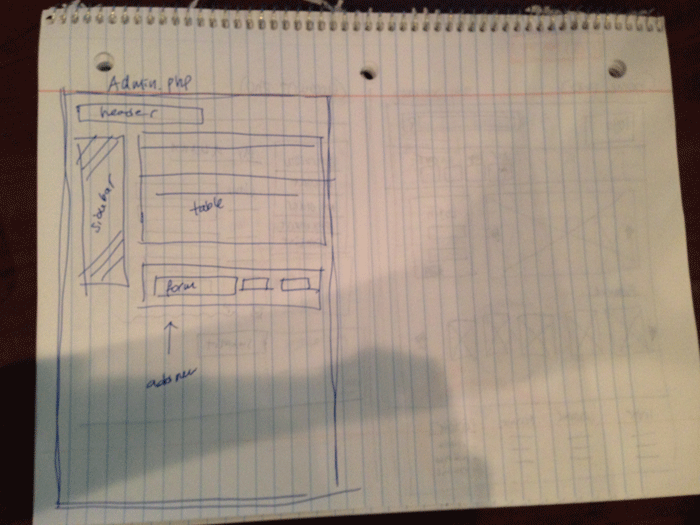 Admin.php
header
sidebar
table
form
add new